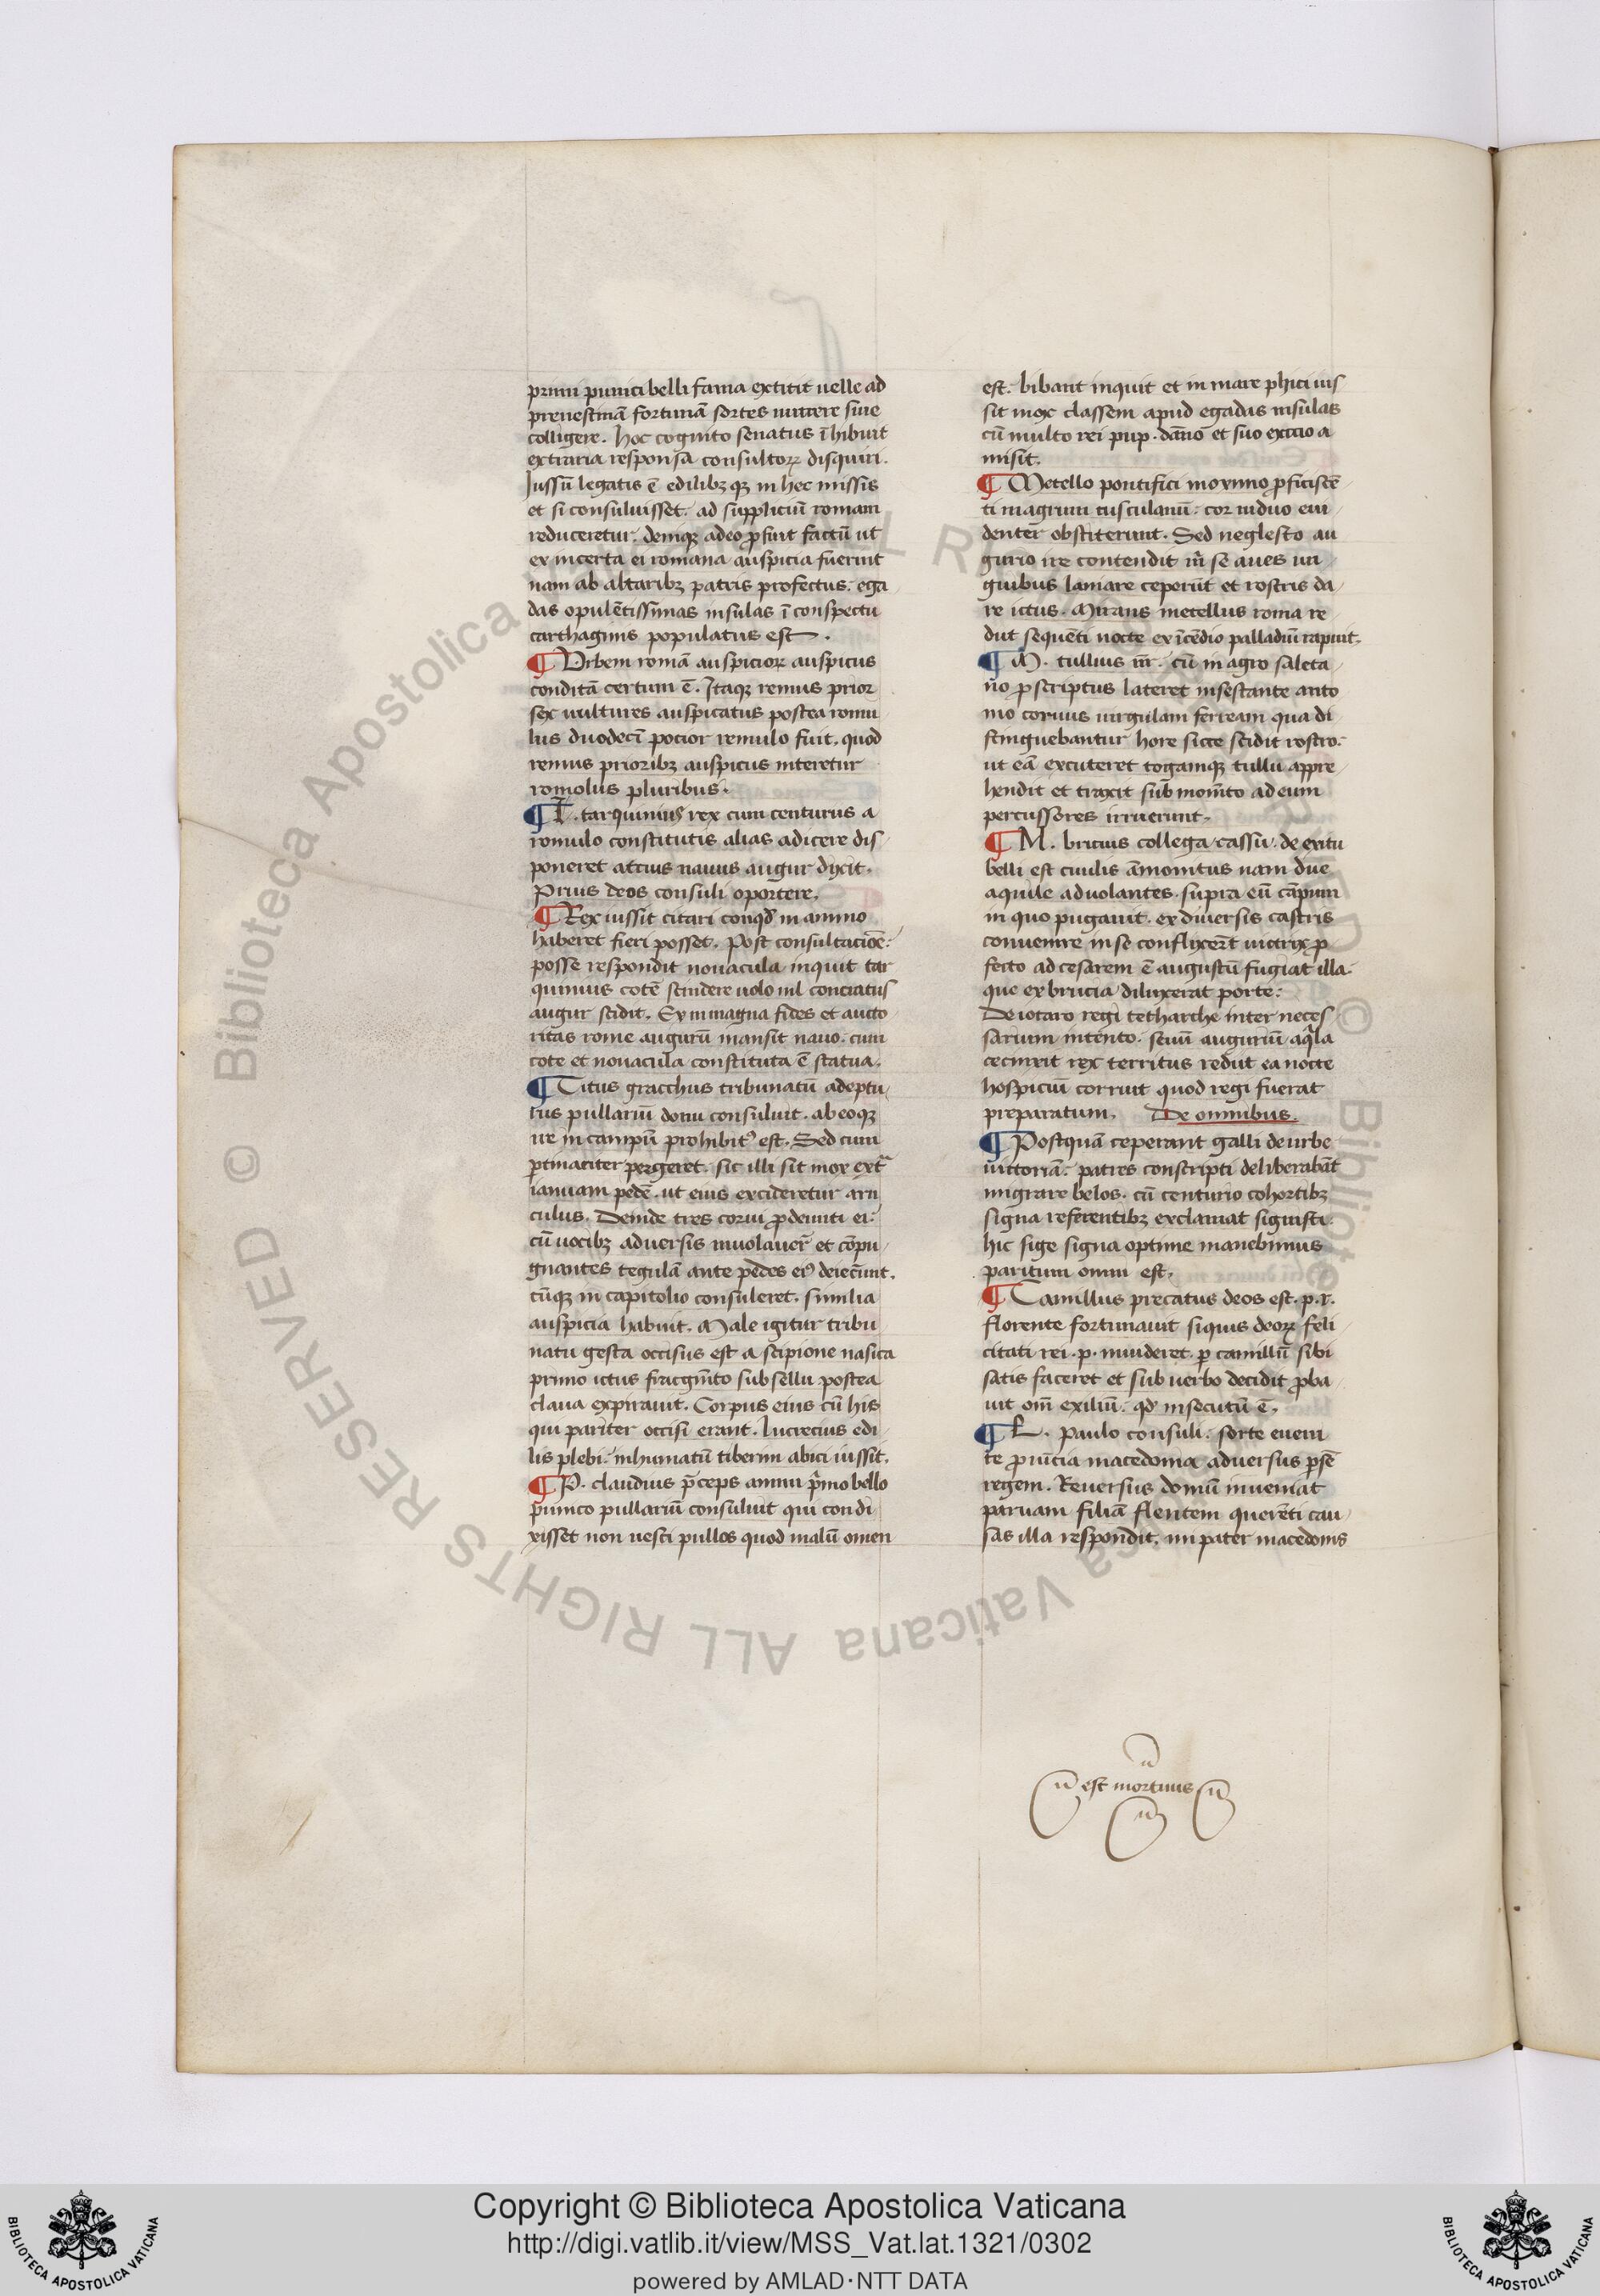 primi punici belli fama extitit uelle ad
prenestinā fortunā sortes mittere siue
colligere. hoc cognito senatus īhibuit
extraria responsa consultoꝝ disquiri.
Jussū legatis ē edilibꝫ qꝫ in hec missis
et si consuluisset. ad suppliciū romam
reduceretur. deniqꝫ adeo ꝓfuit factū ut
ex incerta ei romana auspicia fuerint
nam ab altaribꝫ patris profectus. ega
das opulētissimas insulas ī conspectu
carthaginis populatus est.
¶ Vrbem romā auspicioꝝ auspicus
conditā certum ē. Itaqꝫ remus prior
sex uultures auspicatus postea romu
lus duodecī pocior remulo fuit. quod
remus prioribꝫ auspicus niteretur
romolus pluribus.
¶ L. tarquinius rex cum centurus a
romulo constitutis alias adicere dis
poneret attius nauus augur dixit.
Prius deos consuli oportere.
¶ Rex iussit citari conqđ in animo
haberet fieri posset. Post consultacioē:
posse respondit nouacula inquit tar
quinius cotē scindere uolo nil conctatus
augur scidit. Ex in magna fides et aucto
ritas rome augurū mansit nauo. cum
cote et nouacula constituta ē statua.
¶ Titus gracchus tribunatū adeptu
rus pullariū domi consuluit. ab eoqꝫ
ire in campū prohibitꝰ est. Sed cum
ꝑtinaciter pergeret. sic illi sit mox extᵃ
ianuam pedē. ut eius excideretur arti
culus. Deinde tres corui ꝓdeunti ei:
cū uocibꝫ aduersis inuolauer̄ et cōpu
gnantes tegulā ante pedes eiꝰ deiecer̄unt.
cūqꝫ in capitolio consuleret. similia
auspicia habuit. Male igitur tribu
natu gesta occisus est a scipione nasica
primo ictus fragm̄to subsellii postea
claua expirauit. Corpus eius cū his
qui pariter occisi erant. lucrecius edi
lis plebi. inhumatū tiberim abici iussit.
¶ P. claudius p̄ceps animi p̄mo bello
punico pullariū consuluit qui cum di
xisset non uesci pullos quod malū omen
est. bibant inquit et in mare phici ius
sit mox classem apud egadas insulas
cū multo rei pup. dāno et suo exicio a
misit.
¶ Metello pontifici moximo ꝓficiscē
ti in agrum tusculanū: cor induo eui
denter obstiterunt. Sed neglesto au
gurio ire contendit ur̄ se aues un
guibus laniare ceperūt et rostris da
re ictus. Mirans metellus roma re
diit sequēti nocte ex īcēdio palladiū rapuit.
¶ M. tullius m̄r. cū in agro saleta
no ꝓscriptus lateret insestante anto
nio coruus uirgulam ferream qua di
stinguebantur hore sicce scidit rostro.
ut eā excuteret togamqꝫ tullii appre
hendit et traxit sub mom̄to ad eum
percussores irruerunt.
¶ M. brutus collega cassii. de exitu
belli est ciuilis āmonitus nam due
aquile aduolantes. supra eū cāpum
in quo pugauit. ex diuersis castris
conuenire in se conflixer̄t uictrix ꝓ
fecto ad cesarem ē augustū fugiat illa.
que ex brucia diluxerat porte:
Deiotaro regi tetharche inter neces
sarium intento. seuū auguriū aqͥla
cecinxit rex territus rediit ea nocte
hospiciū corruit quod regi fuerat
preparatum. De omnibus.
¶ Postquā ceperant galli de urbe
uittoriā: patres conscripti deliberabāt
migrare belos. cū centurio cohortibꝫ
signa referentibꝫ exclamat signisti.
hic sige signa optime manebimus
paritum omni est.
¶ Camillus precatus deos est. p. r.
florente fortunauit siquis deoꝝ feli
citati rei. p. inuideret ꝑ camillū sibi
satis faceret et sub uerbo decidit ꝓba
uit om̄ exiliū. qđ insecutū ē.
¶ L. Paulo consuli. sorte eueni
te ꝓuīcia macedoma aduersus ꝑsē
regem. Reuersus domū inueniat
paruam filiā flentem querēti cau
sas illa respondit. mi pater macedonis
est mortuus
Copyright © Biblioteca Apostolica Vaticana
http://digi.vatlib.it/view/MSS_Vat.lat.1321/0302
powered by AMLAD·NTT DATA
BIBLIOTECA APOSTOLICA VATICANA
BIBLIOTECA APOSTOLICA VATICANA
© Biblioteca Apostolica Vaticana ALL RIGHTS RESERVED